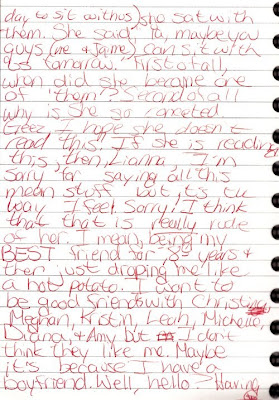 day to sit withus) she sat with
them. She said "Ya, maybe you
guys (me & Jaime) can sit with
us tomarow." First of all,
when did she become one
of "them"? Second of all
why is she so conceted
Geez I hope she doesn't
read this! If she is reading
this, then, Lianna I'm
sorry for saying all this
mean stuff but it's the
way I feel. Sorry! I think
that that is really rude
of her. I mean, being my
BEST friend for 8 years &
then just droping me like
a hot potato. I want to
be good friends with Christina,
Meghan, Kristin, Leah, Michelle,
Diana, & Amy but I don't
think they like me. Maybe
it's because I have a
boyfriend. Well, hello? Having